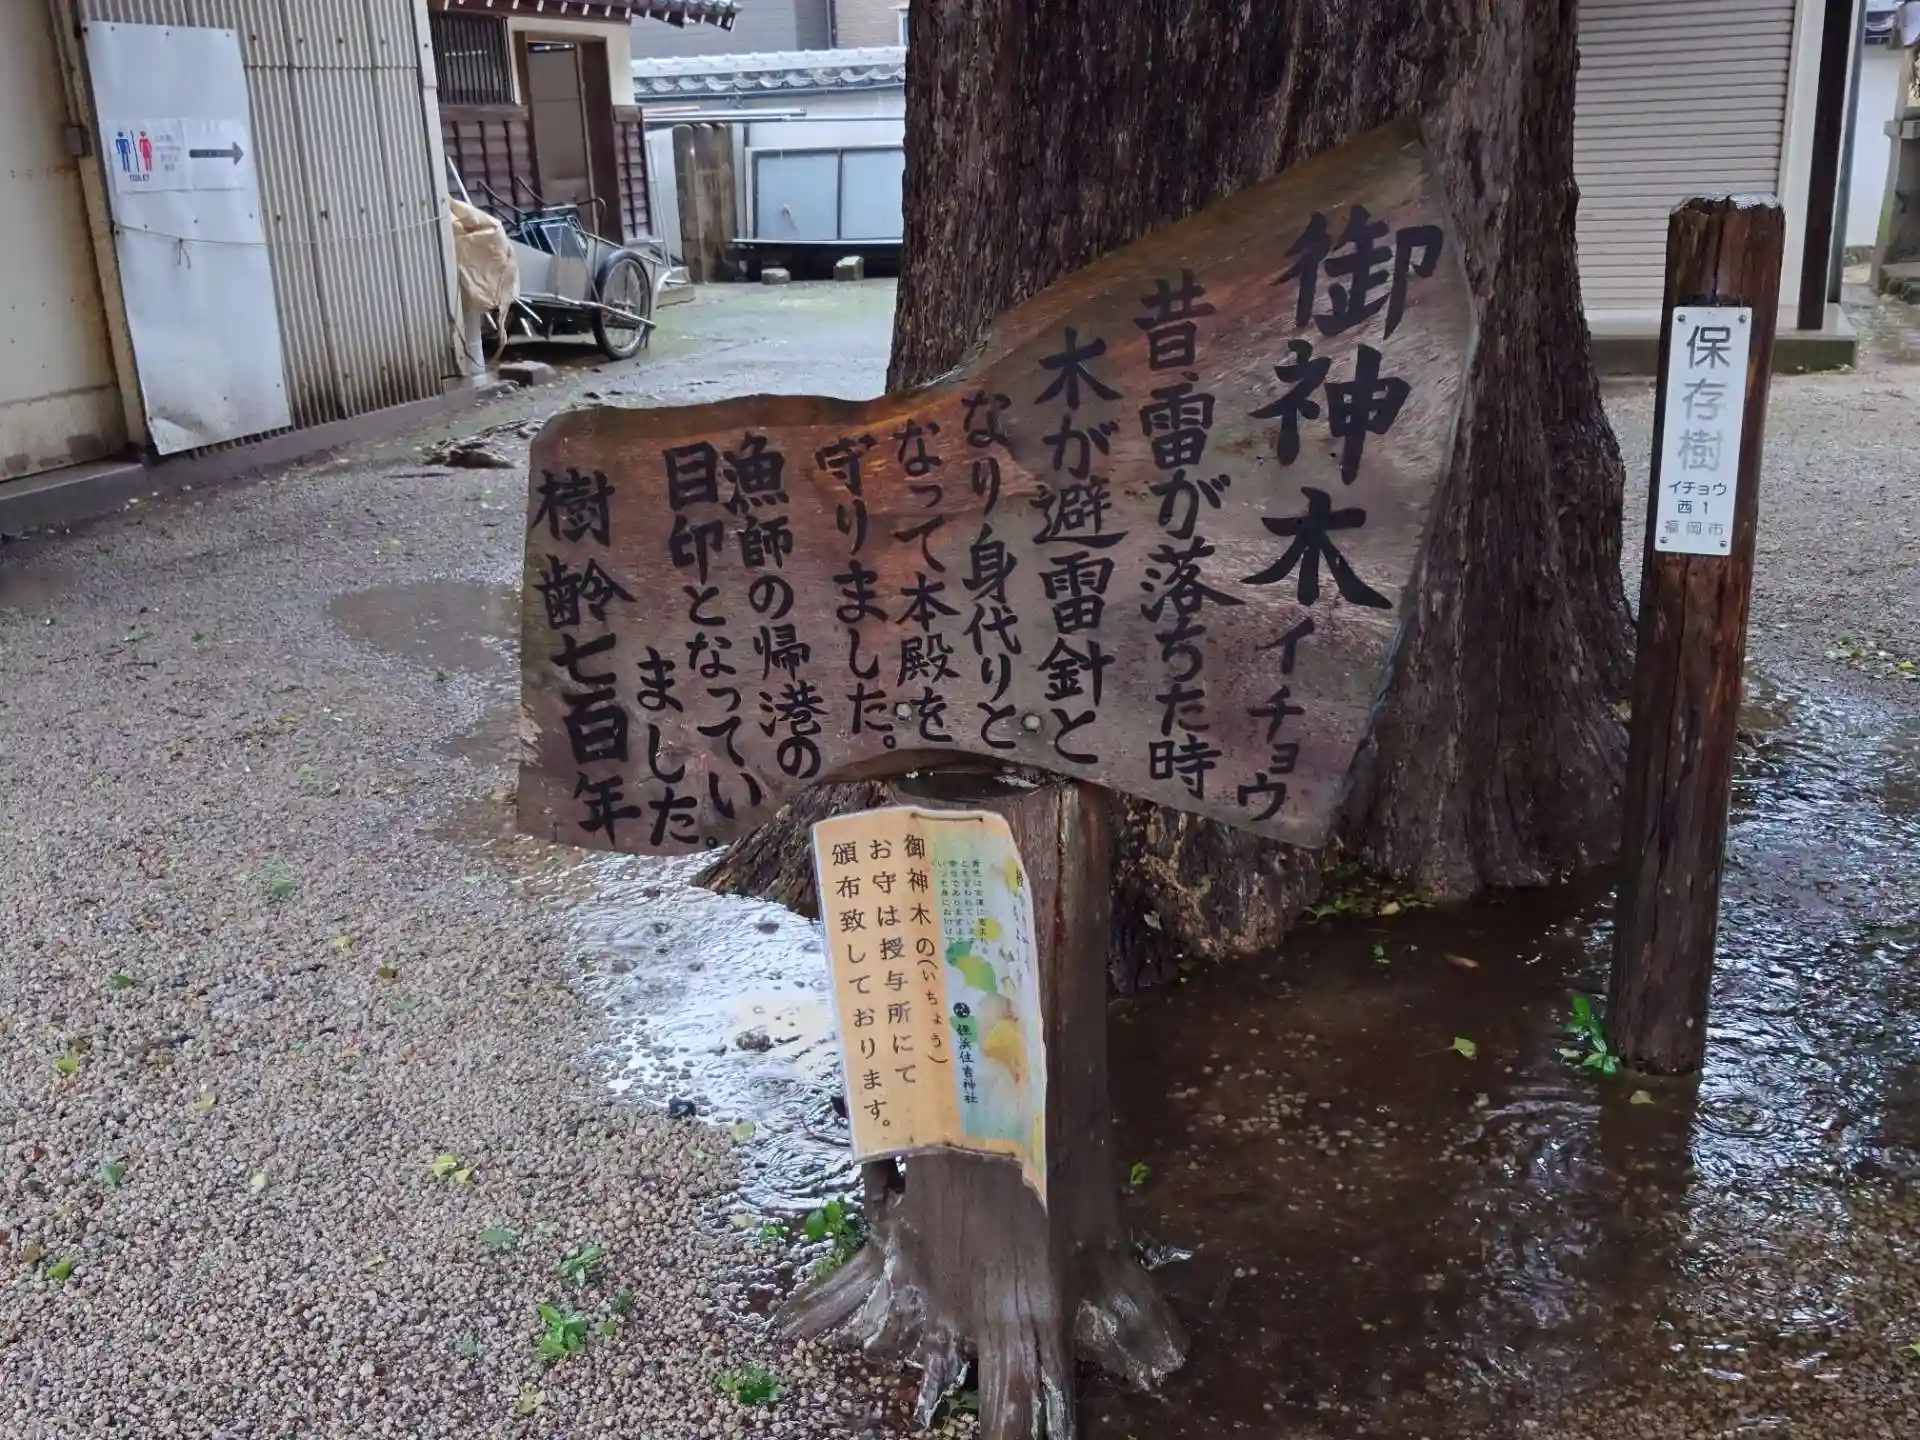 御神木 イチョウ
昔、雷が落ちた時
木が避雷針と
なり身代りと
なって本殿を
守りました。
漁師の帰港の
目印となってい
ました。
樹齢七百年
保存樹
イチョウ
西1
福岡市
御神木の(いちょう)
お守は授与所にて
頒布致しております。
姪浜住吉神社
TOILET